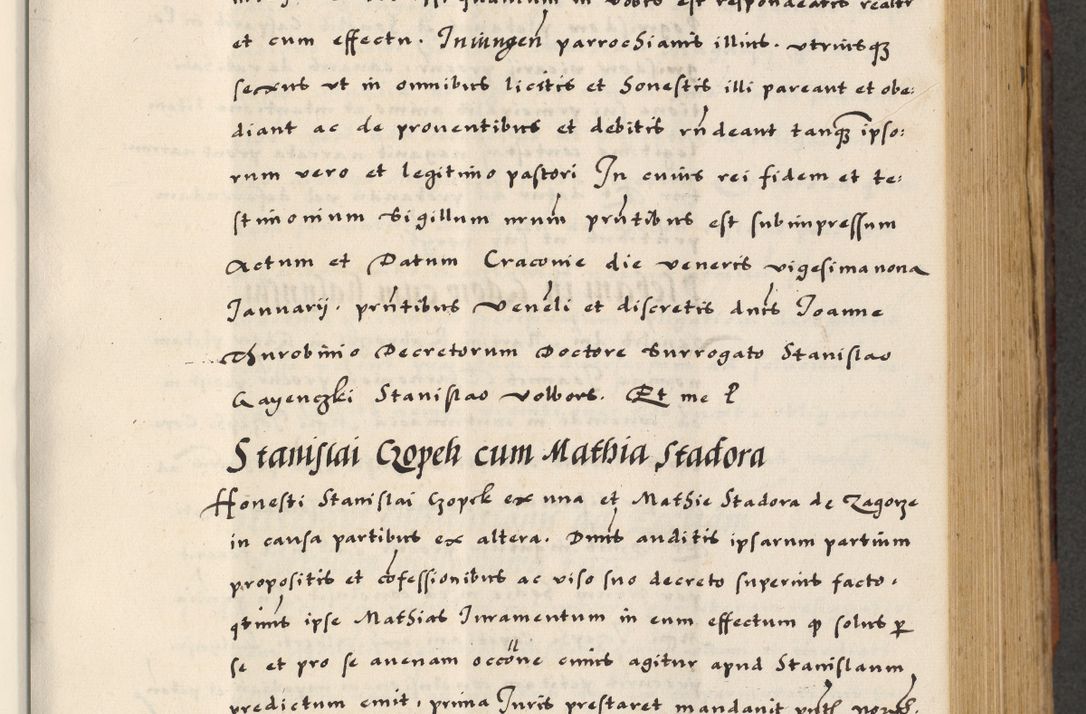 quantum in vobis est respondeatis realit
et cum effectu. Iniungen̄ parrochianis illius. utriusqȝ
sexus ut in omnibus licitis et honestis illi pareant et obe:
diant ac de proventibus et debitis rn̄deant tanqȝ ipso:
rum vero et legitimo pastori In cuius rei fidem et te:
stimonium Sigillum nr̄um prn̄tibus est subimpressum
Actum et Datum Craconie die veneris vigesima nona
Ianuarij. prn̄tibus Venēli et discretis dn̄is Ioanne
Thurobinio Decretorum Doctore Surrogato Stanislao
Gayenczki Stanislao volbors. Et me P
Stanislai Czopek cum Mathia Stadora
Honesti Stanislai Czopek ex una et Mathie Stadora de Zagorze
in causa partibus ex altera. Dn̄us auditis ipsarum partium
propositis et cōfessionibus ac viso suo decreto superius facto.
qtin̄us ipse Mathias Iuramentum in eum effectum qȝ solus p
se et pro se avenam occōne cuius agitur apud Stanislaum
predictum emit. prima Iuris prestaret mandavit